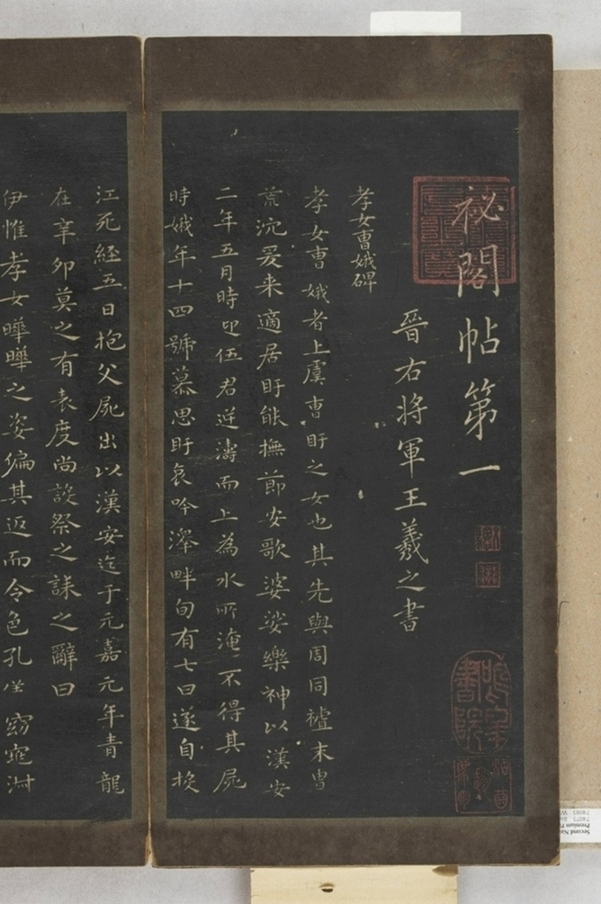 祕閣帖第一
晉右將軍王羲之書
孝女曹娥碑
孝女曹娥者上虞曹盱之女也其先與周同祖末冑
荒沉爰来適居盱能撫節安歌婆娑樂神以漢安
二年五月時迎伍君逆濤而上為水所淹不得其屍
時娥年十四號慕思盱哀吟澤畔旬有七日遂自投
江死經五日抱父屍出以漢安迄于元嘉元年青龍
在辛卯莫之有表度尚設祭之誄之辭曰
伊惟孝女曄曄之姿偏其返而令色孔㐹窈窕淑
鳴皋書院